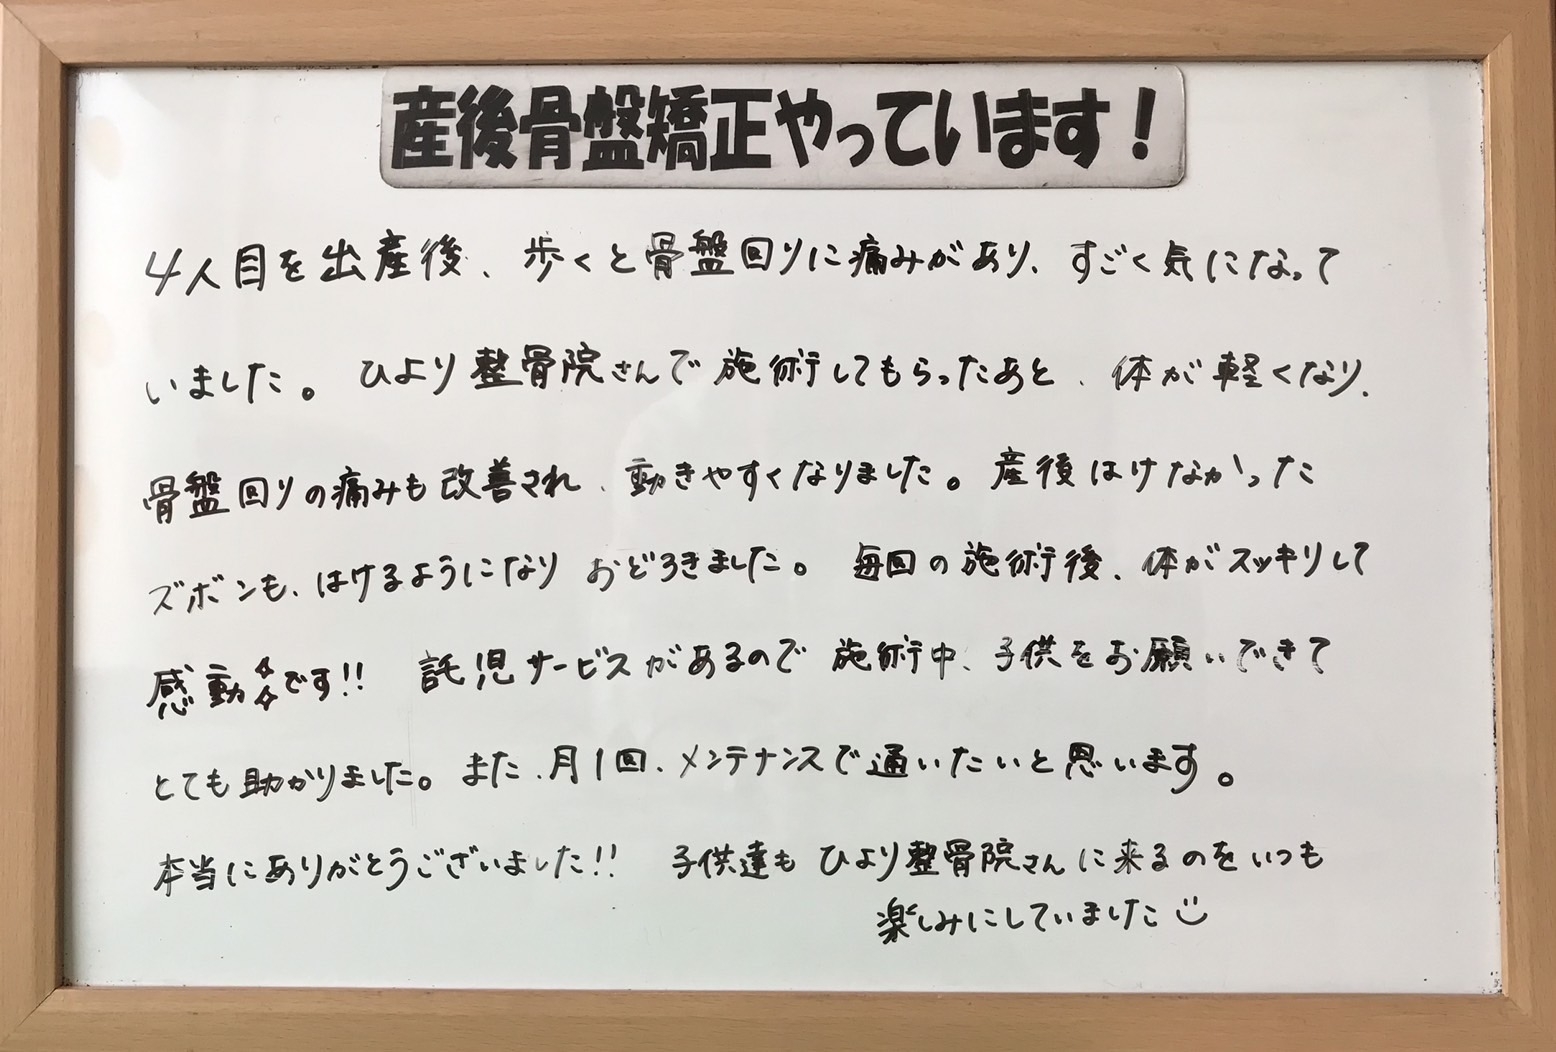 産後骨盤矯正やっています!
4人目を出産後、歩くと骨盤回りに痛みがあり、すごく気になって
いました。ひより整骨院さんで施術してもらったあと、体が軽くなり、
骨盤回りの痛みも改善され、動きやすくなりました。産後はけなかった
ズボンも、はけるようになりおどろきました。毎回の施術後、体がスッキリして
感動です!! 託児サービスがあるので施術中、子供をお願いできて
とても助かりました。また、月1回、メンテナンスで通いたいと思います。
本当にありがとうございました!! 子供達もひより整骨院さんに来るのをいつも
楽しみにしていました